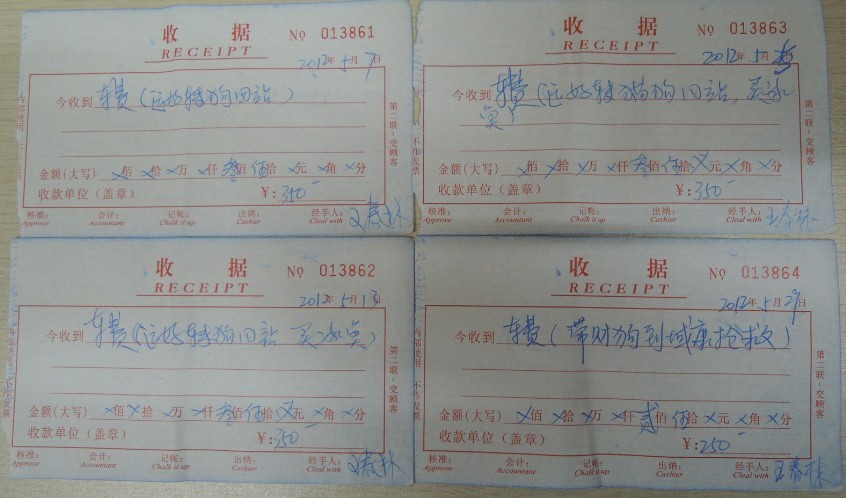 收 据
RECEIPT
№ 013861
2012年5月7日
今收到 车费(运好转狗回站)
金额(大写)×佰×拾×万×仟叁佰伍拾×元×角×分
收款单位(盖章) ¥:350-
核准: 会计: 记帐: 出纳: 经手人:
Approve Accountant Chalk it up Cashier Cleal with
第二联·交顾客
收 据
RECEIPT
№ 013863
2012年5月
今收到 车费(运好转猫狗回站,买
金额(大写)×佰×拾×万×仟叁佰伍拾×元×角×分
收款单位(盖章) ¥:350-
核准: 会计: 记帐: 出纳: 经手人: 王春林
Approve Accountant Chalk it up Cashier Cleal with
第二联·交顾客
收 据
RECEIPT
№ 013862
2012年5月13日
今收到 车费(运好转狗回站 买
金额(大写)×佰×拾×万×仟叁佰伍拾×元×角×分
收款单位(盖章) ¥:350-
核准: 会计: 记帐: 出纳: 经手人:
Approve Accountant Chalk it up Cashier Cleal with
第二联·交顾客
收 据
RECEIPT
№ 013864
2012年5月29日
今收到 车费(带财狗到域康抢救)
金额(大写)×佰×拾×万×仟贰佰伍拾×元×角×分
收款单位(盖章) ¥:250-
核准: 会计: 记帐: 出纳: 经手人: 王春林
Approve Accountant Chalk it up Cashier Cleal with
第二联·交顾客